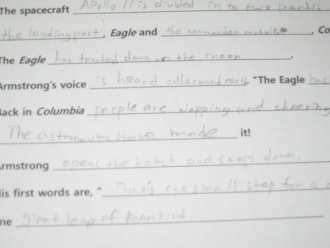 The spacecraft Apollo 11 is divided in to two parts:
the landing part, Eagle and the comander module, Co
The Eagle has touched down on the moon.
Armstrong's voice is heard all around, "The Eagle has
Back in Columbia people are clapping and cheering
The astronauts have made it!
Armstrong opens the hatch and steps down.
His first words are, "That's one small step for a
ne giant leap of mankind.